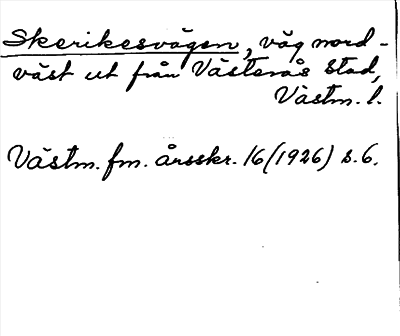 Skerikesvägen, väg nord-
väst ut från Västerås stad,
Västm. l.
Västm. fm. årsskr. 16 (1926) s. 6.